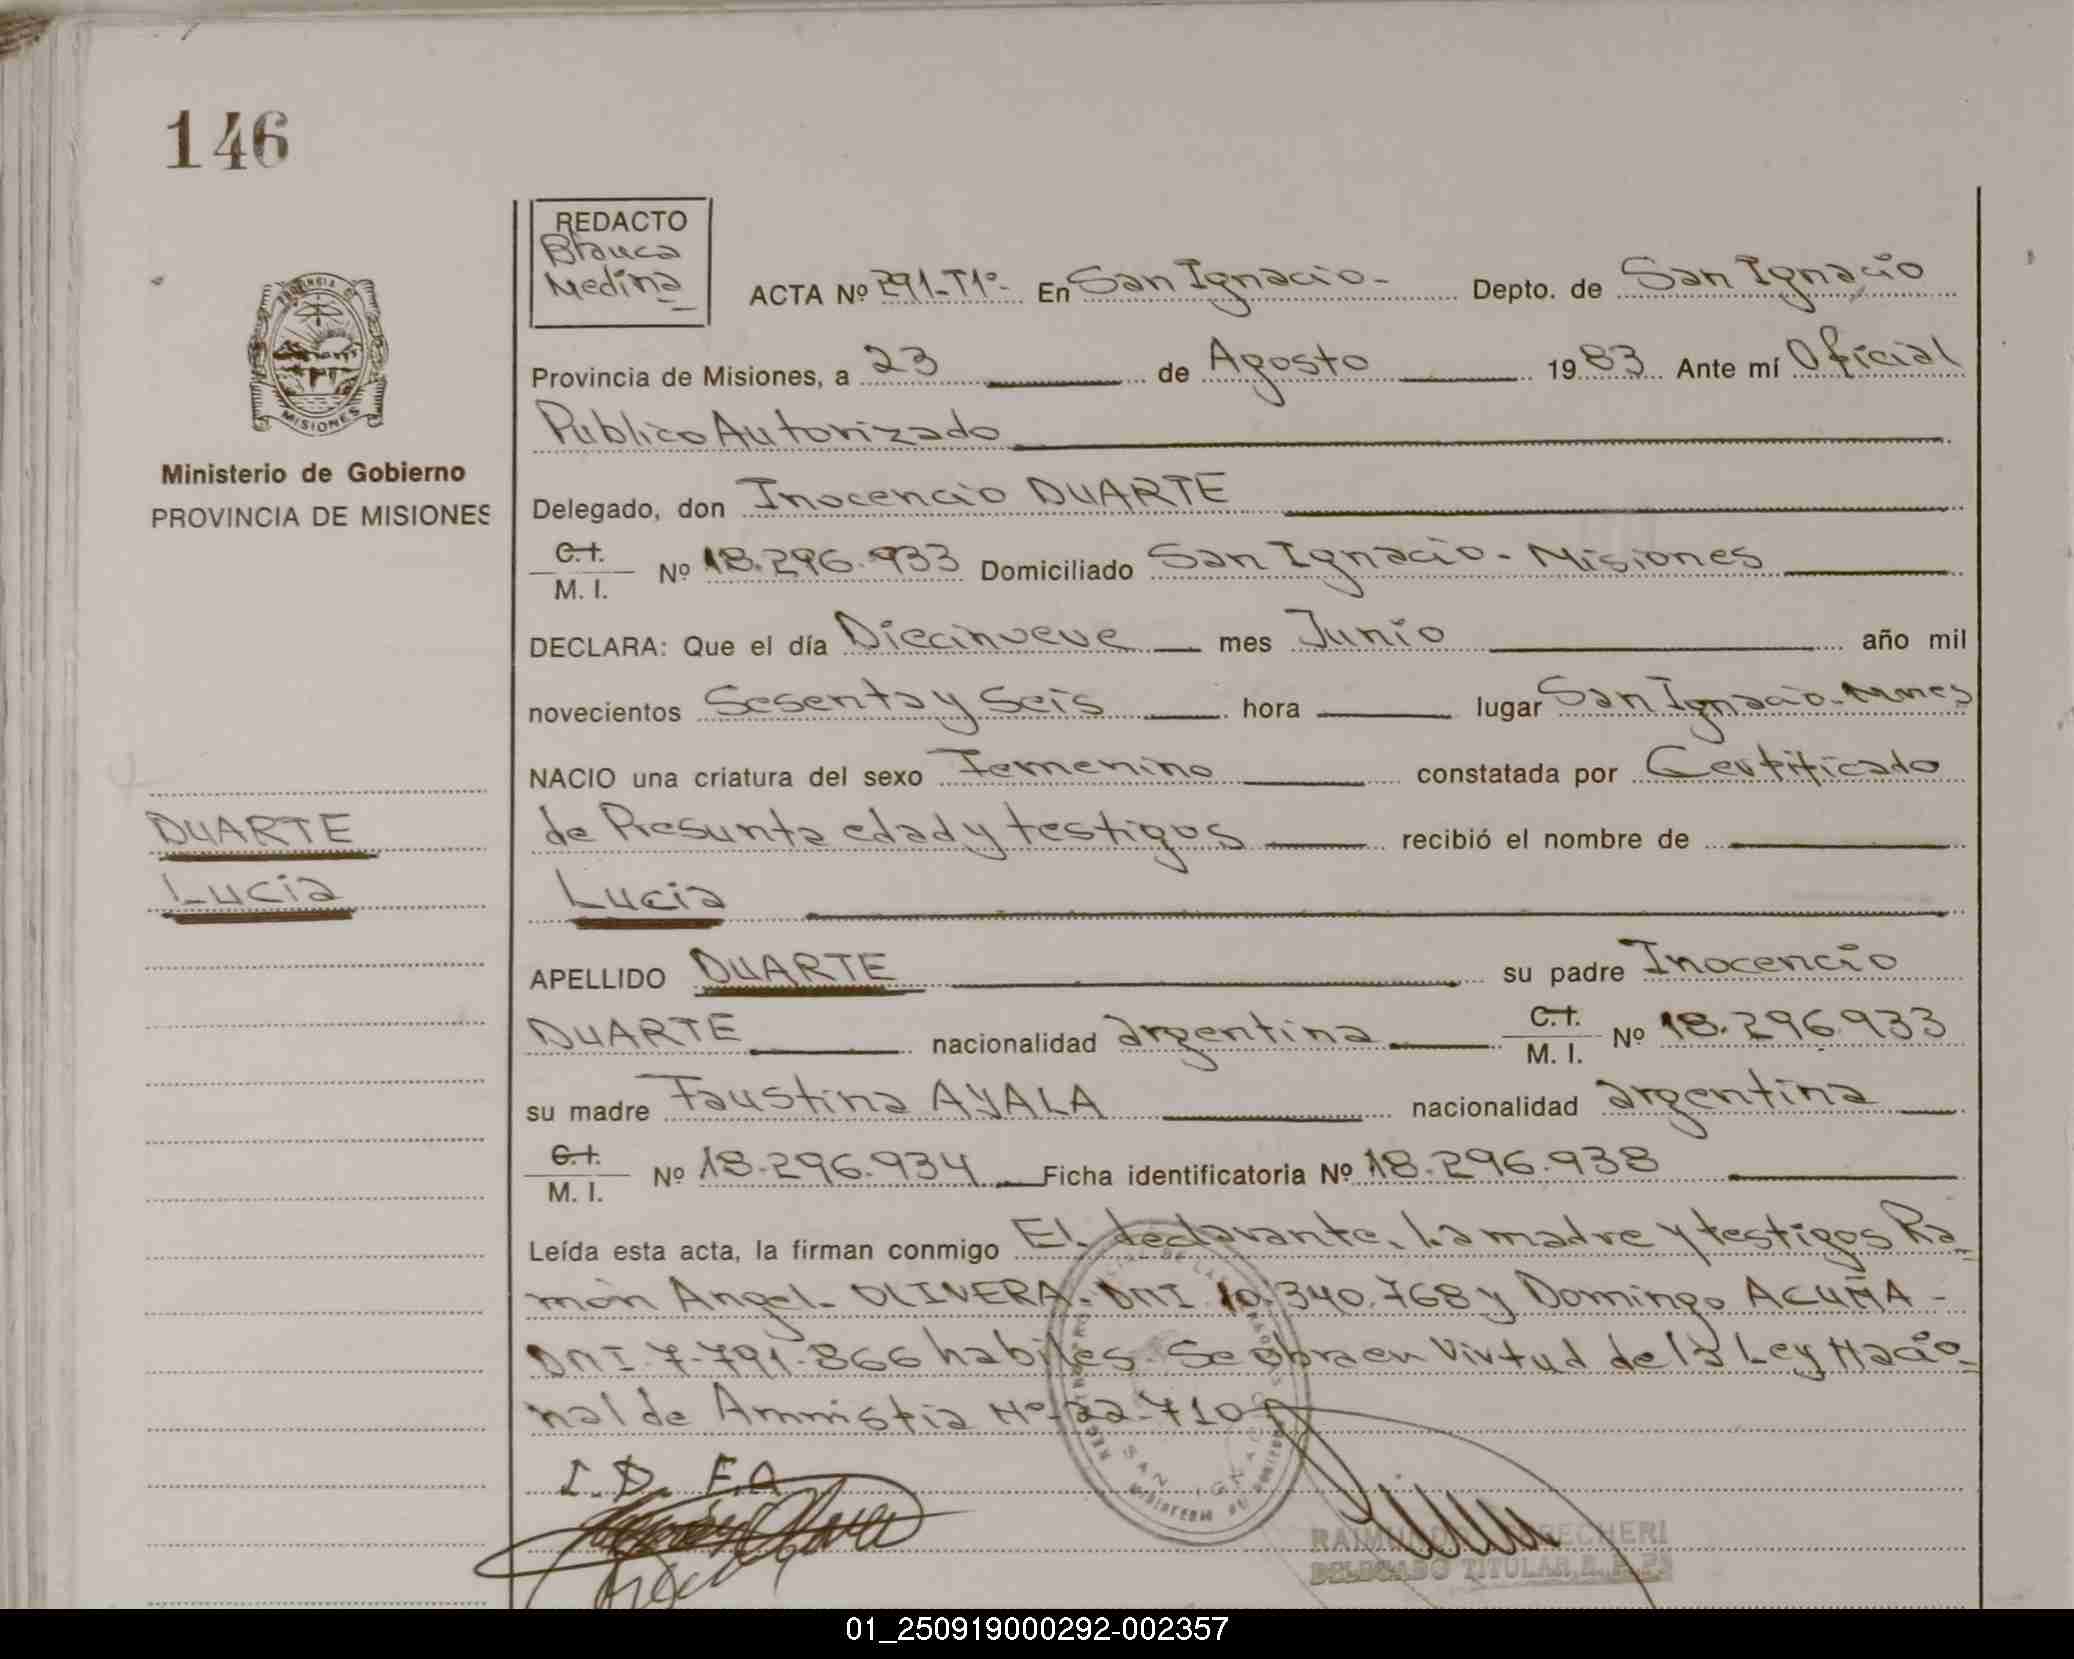 146
REDACTO
Blanca
Medina
ACTA Nº 291-T1º- En San Ignacio- Depto. de San Ignacio
Provincia de Misiones, a 23 de Agosto 1983 Ante mí Oficial
Publico Autorizado
Ministerio de Gobierno
PROVINCIA DE MISIONES
MISIONES
Delegado, don Inocencio DUARTE
C.I.
M. I. Nº 18.296.933 Domiciliado San Ignacio - Misiones
DECLARA: Que el día Diecinueve mes Junio año mil
novecientos Sesenta y Seis hora lugar San Ignacio-
NACIO una criatura del sexo Femenino constatada por Certificado
de Presunta edad y testigos recibió el nombre de
DUARTE
Lucia
Lucia
APELLIDO DUARTE su padre Inocencio
DUARTE nacionalidad argentina C.I.
M. I. Nº 18.296.933
su madre Faustina AYALA nacionalidad argentina
C.I.
M. I. Nº 18.296.934 Ficha identificatoria Nº 18.296.938
Leída esta acta, la firman conmigo El declarante, la madre y testigos Ra-
món Angel- OLIVERA- DNI 10.340.768 y Domingo ACUÑA-
DNI 7.791.866 habiles. Se obra en Virtud de la Ley Nacio-
nal de Amnistia Nº-22.710
I.D. F.A
SAN IGNACIO
DELEGADO TITULAR
01_250919000292-002357